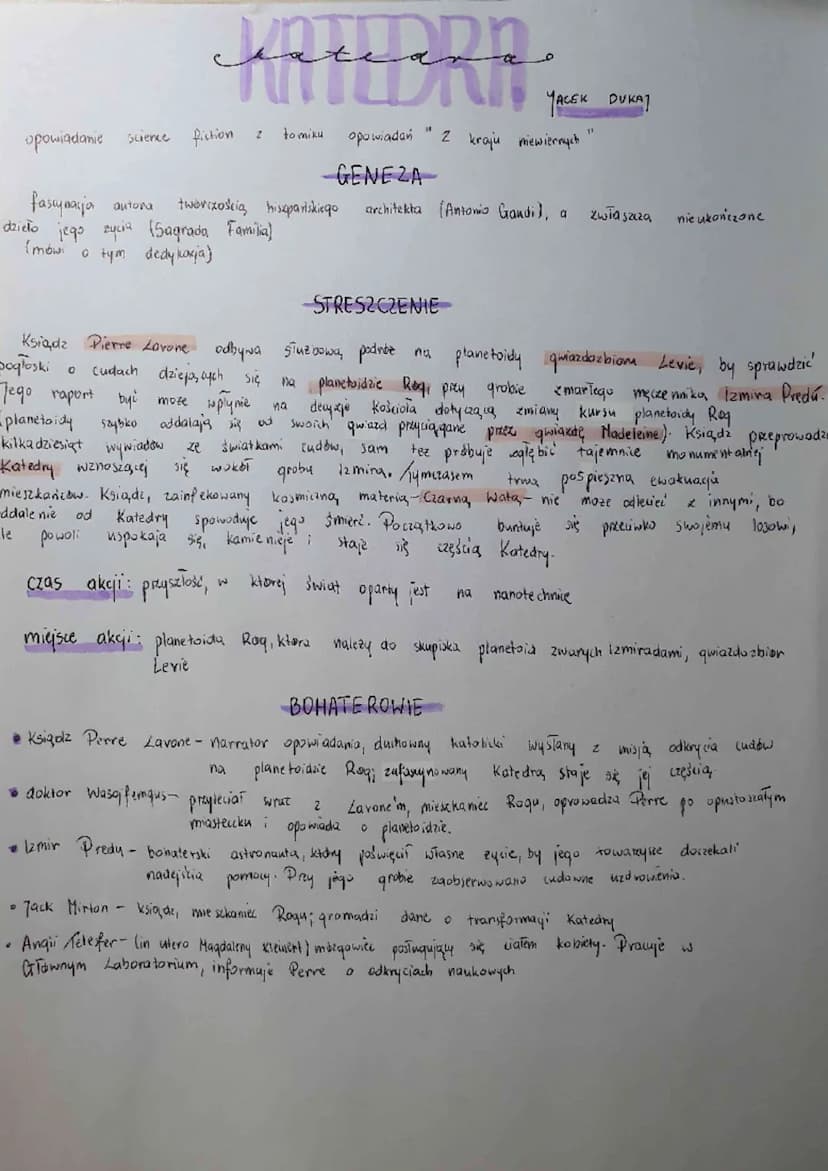 KATEDRA
katedra
JACEK DUKAJ
opowiadanie science fiction z tomiku opowiadań "Z kraju niewiernych"
GENEZA
fascynacja autora twórczością hiszpańskiego architekta (Antonio Gaudi), a zwłaszcza nieukończone
dzieło jego życia (Sagrada Familia)
(mówi o tym dedykacja)
STRESZCZENIE
Ksiądz Pierre Lavone odbywa służbową podróż na planetoidy gwiazdozbioru Levie, by sprawdzić
pogłoski o cudach dziejących się na planetoidzie Rog, przy grobie zmarłego męczennika Izmira Predú.
Jego raport być może wpłynie na decyzje Kościoła dotyczącą zmiany kursu planetoidy Rog
(planetoidy szybko oddalają się od swoich gwiazd przyciągane przez gwiazdę Madeleine). Ksiądz przeprowadz
kilkadziesiąt wywiadów ze świadkami cudów, sam też próbuje zgłębić tajemnice monumentalnej
Katedry wznoszącej się wokół grobu Izmira. Tymczasem trwa pospieszna ewakuacja
mieszkańców. Ksiądz, zainfekowany kosmiczną materią - Czarną Watą - nie może odlecieć z innymi, bo
ddalenie od Katedry spowoduje jego śmierć. Początkowo buntuje się przeciwko swojemu losowi,
le powoli uspokaja się, kamienieje i staje się częścią Katedry.
czas akcji: przyszłość, w której świat oparty jest na nanotechnice
miejsce akcji: planetoida Rog, która należy do skupiska planetoid zwanych Izmiradami, gwiazdozbior
Levie
BOHATEROWIE
• Ksiądz Perre Lavone - narrator opowiadania, duchowny katolicki wysłany z misją odkrycia cudów
na planetoidzie Rog; zafascynowany Katedrą staje się jej częścią
• doktor Wasojfemgus - przyleciał wraz z Lavone'm, mieszkaniec Rogu, oprowadza Perre po opustoszałym
miasteczku i opowiada o planetoidzie.
• Izmir Predu - bohaterski astronauta, który poświęcił własne życie, by jego towarzysze doczekali
nadejścia pomocy. Przy jego grobie zaobserwowano cudowne uzdrowienia.
• Jack Mirton - ksiądz, mieszkaniec Rogu; gromadzi dane o transformacji Katedry
• Angii Telesfer - (in utero Magdaleny Kleinert) mózgowiec posługujący się ciałem kobiety. Pracuje w
Głównym Laboratorium, informuje Perre o odkryciach naukowych